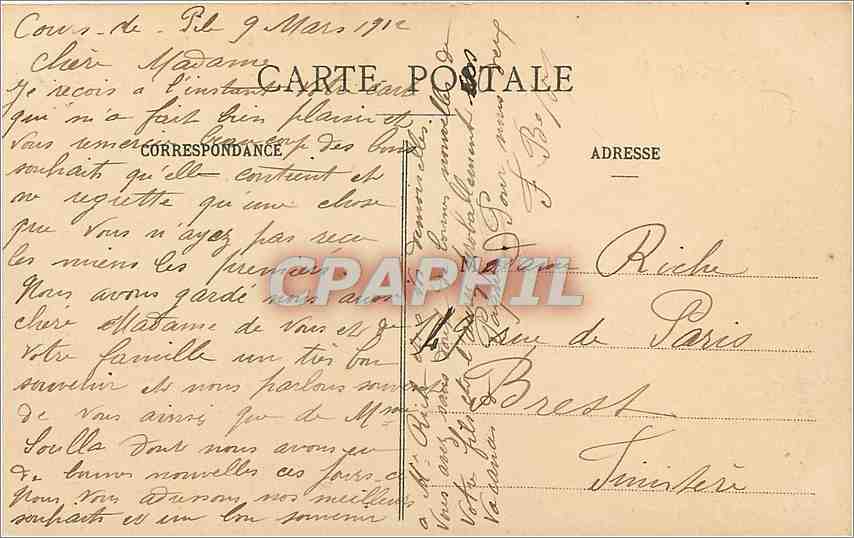 Cours-de-Pile 9 Mars 1912
Chère Madame
CARTE POSTALE
CORRESPONDANCE
ADRESSE
Je reçois à l'instant votre carte
qui m'a fait bien plaisir et
vous remercie beaucoup des bons
souhaits qu'elle contient et
ne regrette qu'une chose
que vous n'ayez pas reçu
les miens les premiers.
Nous avons gardé nous aussi
chère Madame de vous et de
votre famille un très bon
souvenir et nous parlons souvent
de vous ainsi que de Mme
Soulla dont nous avons eu
de bonnes nouvelles ces jours-ci
Nous vous adressons nos meilleurs
souhaits et un bon souvenir
à Mr Riche demoiselles
Vous avez sans bonnes nouvelles de
votre fils probablement
vacances Pour nous deux
F. B
Madame Riche
rue de Paris
Brest
Finistère
CPAPHIL